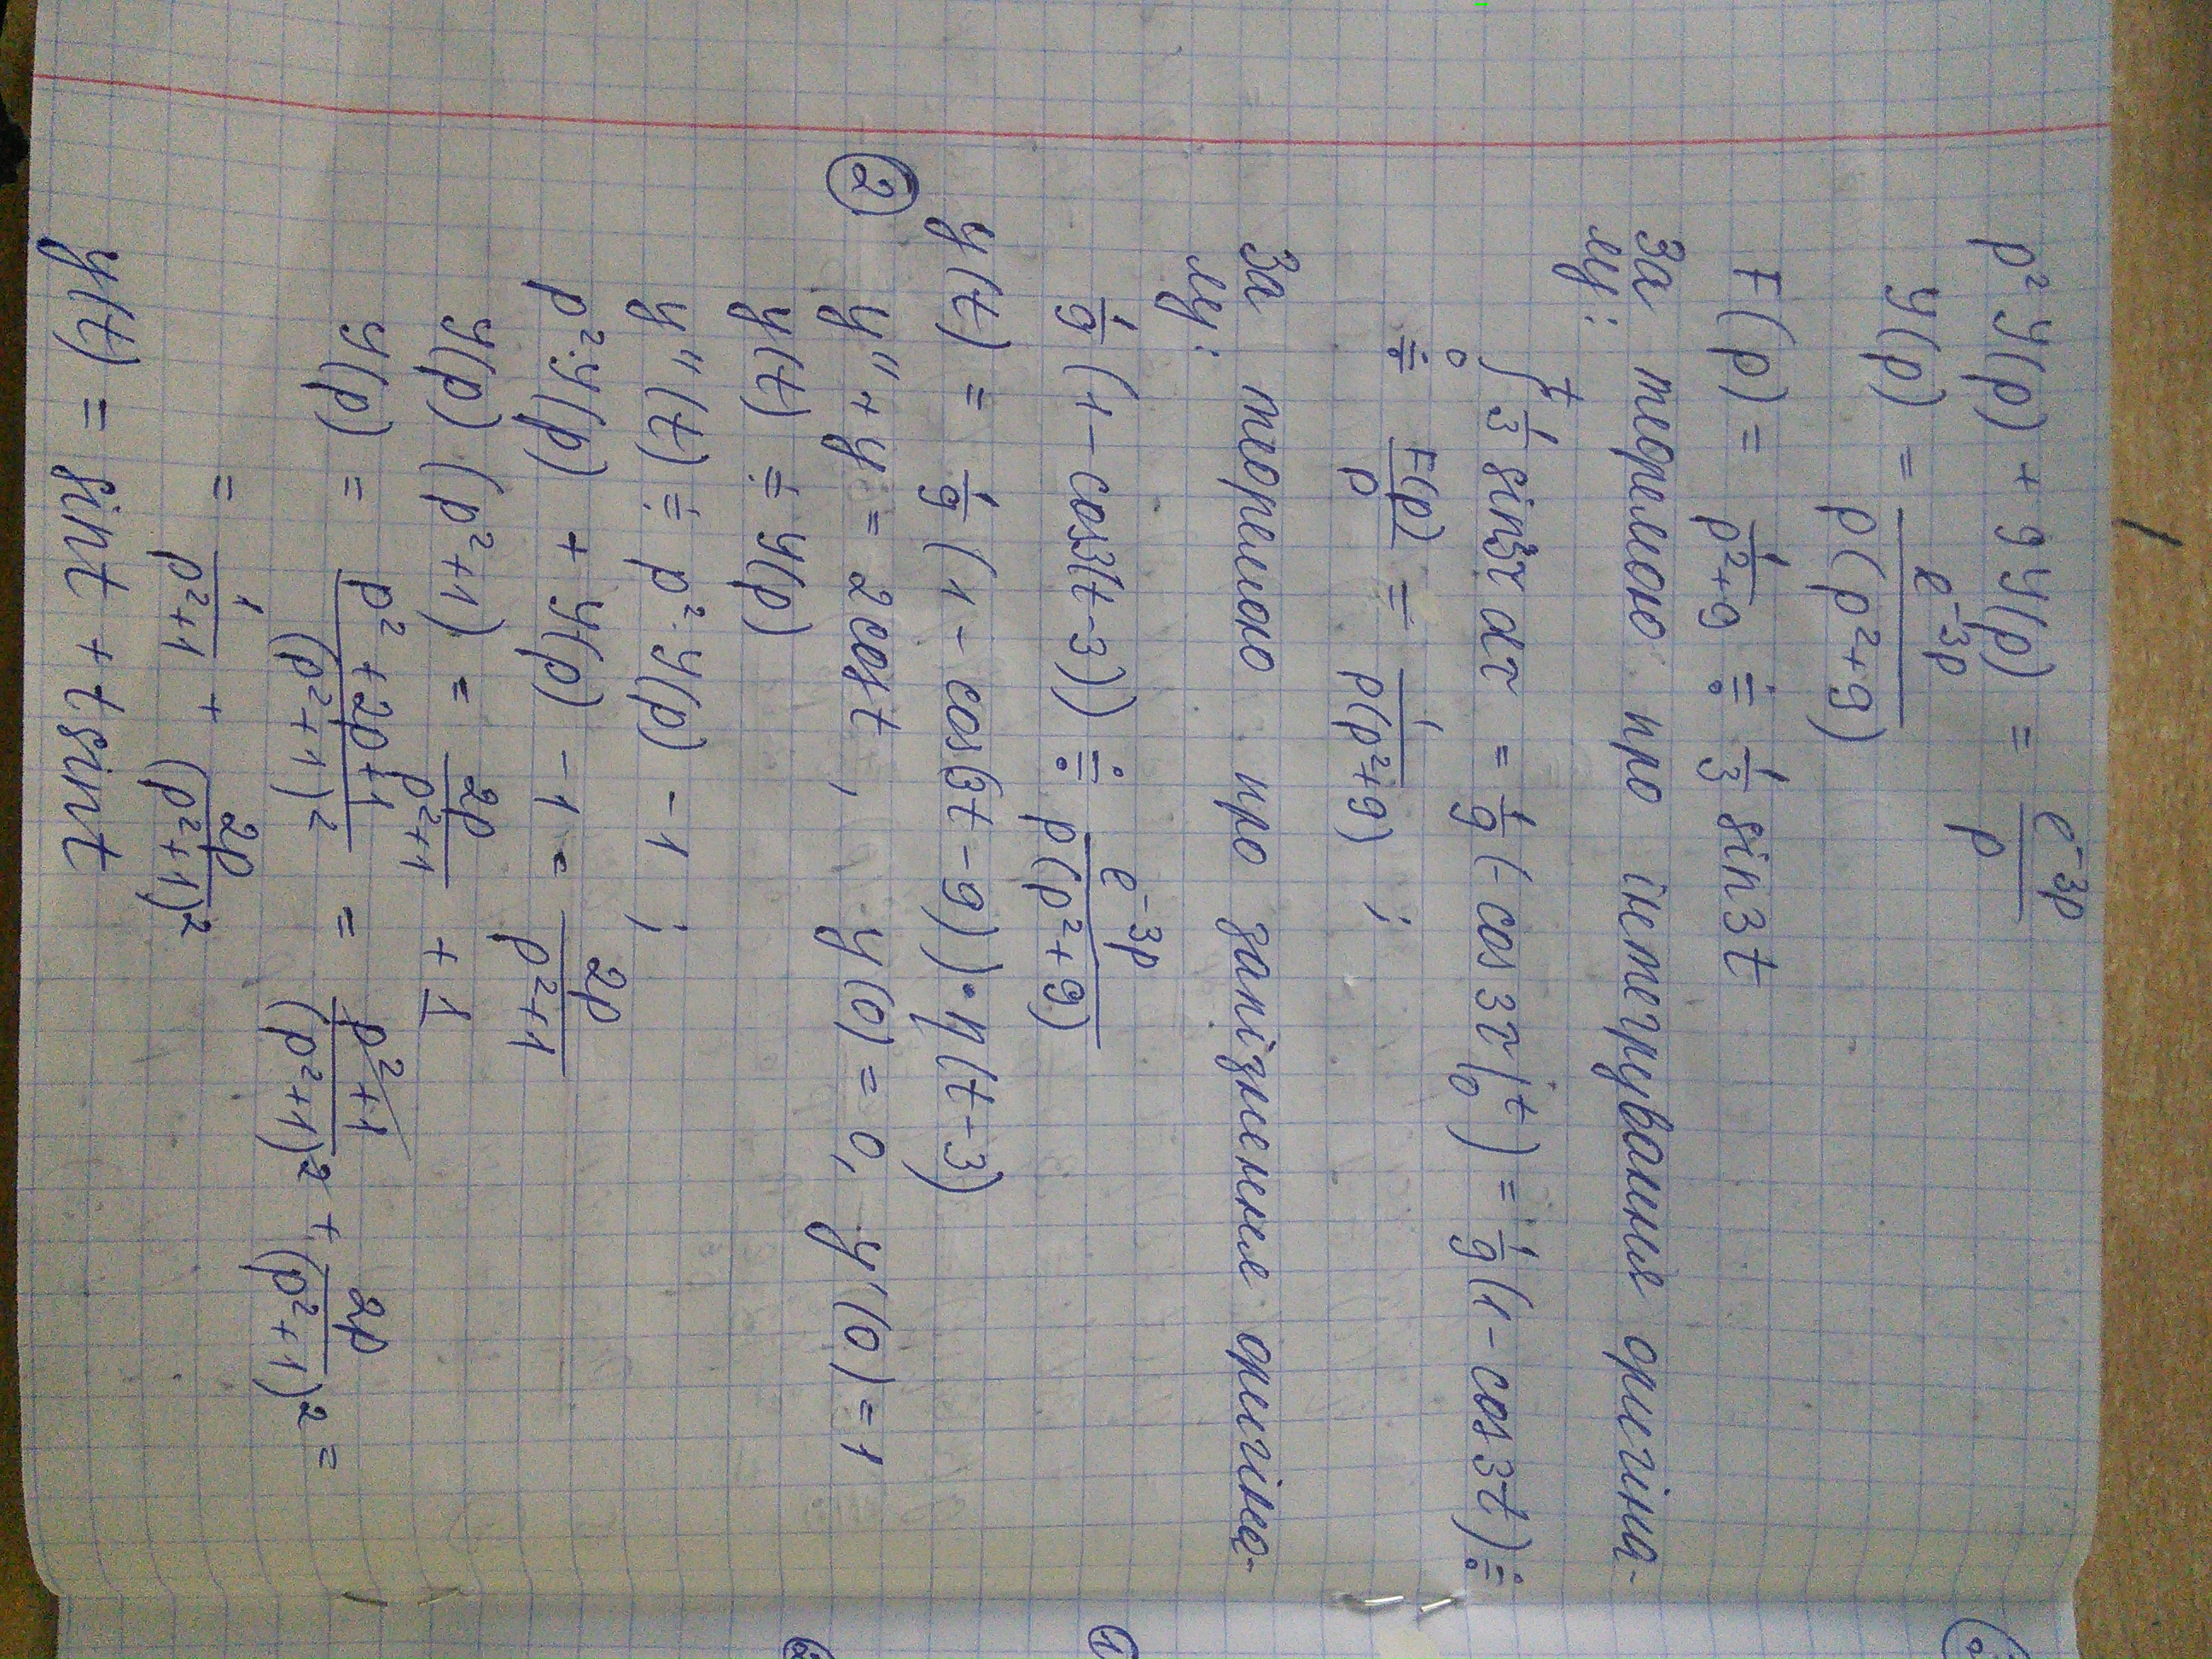 p² Y(p) + 9 Y(p) = e⁻³ᵖ/p
Y(p) = e⁻³ᵖ/(p(p²+9))
F(p) = 1/(p²+9) ≓ 1/3 sin3t
За теоремою про інтегрування оригіна-
лу:
∫₀ᵗ 1/3 sin3τ dτ = 1/9 (- cos 3τ|₀ᵗ) = 1/9 (1 - cos 3t) ≓
≓ F(p)/p = 1/(p(p²+9)) ;
За теоремою про запізнення оригіна-
лу:
1/9 (1 - cos3(t-3)) ≓ e⁻³ᵖ/(p(p²+9))
y(t) = 1/9 (1 - cos(3t-9)) · η(t-3)
② y'' + y = 2cost , y(0) = 0, y'(0) = 1
y(t) ≓ Y(p)
y''(t) ≓ p² · Y(p) - 1 ;
p² · Y(p) + Y(p) - 1 = 2p/(p²+1)
Y(p) (p²+1) = 2p/(p²+1) + 1
Y(p) = (p² + 2p + 1)/(p²+1)² = (p²+1)/(p²+1)² + 2p/(p²+1)² =
= 1/(p²+1) + 2p/(p²+1)²
y(t) = sint + tsint